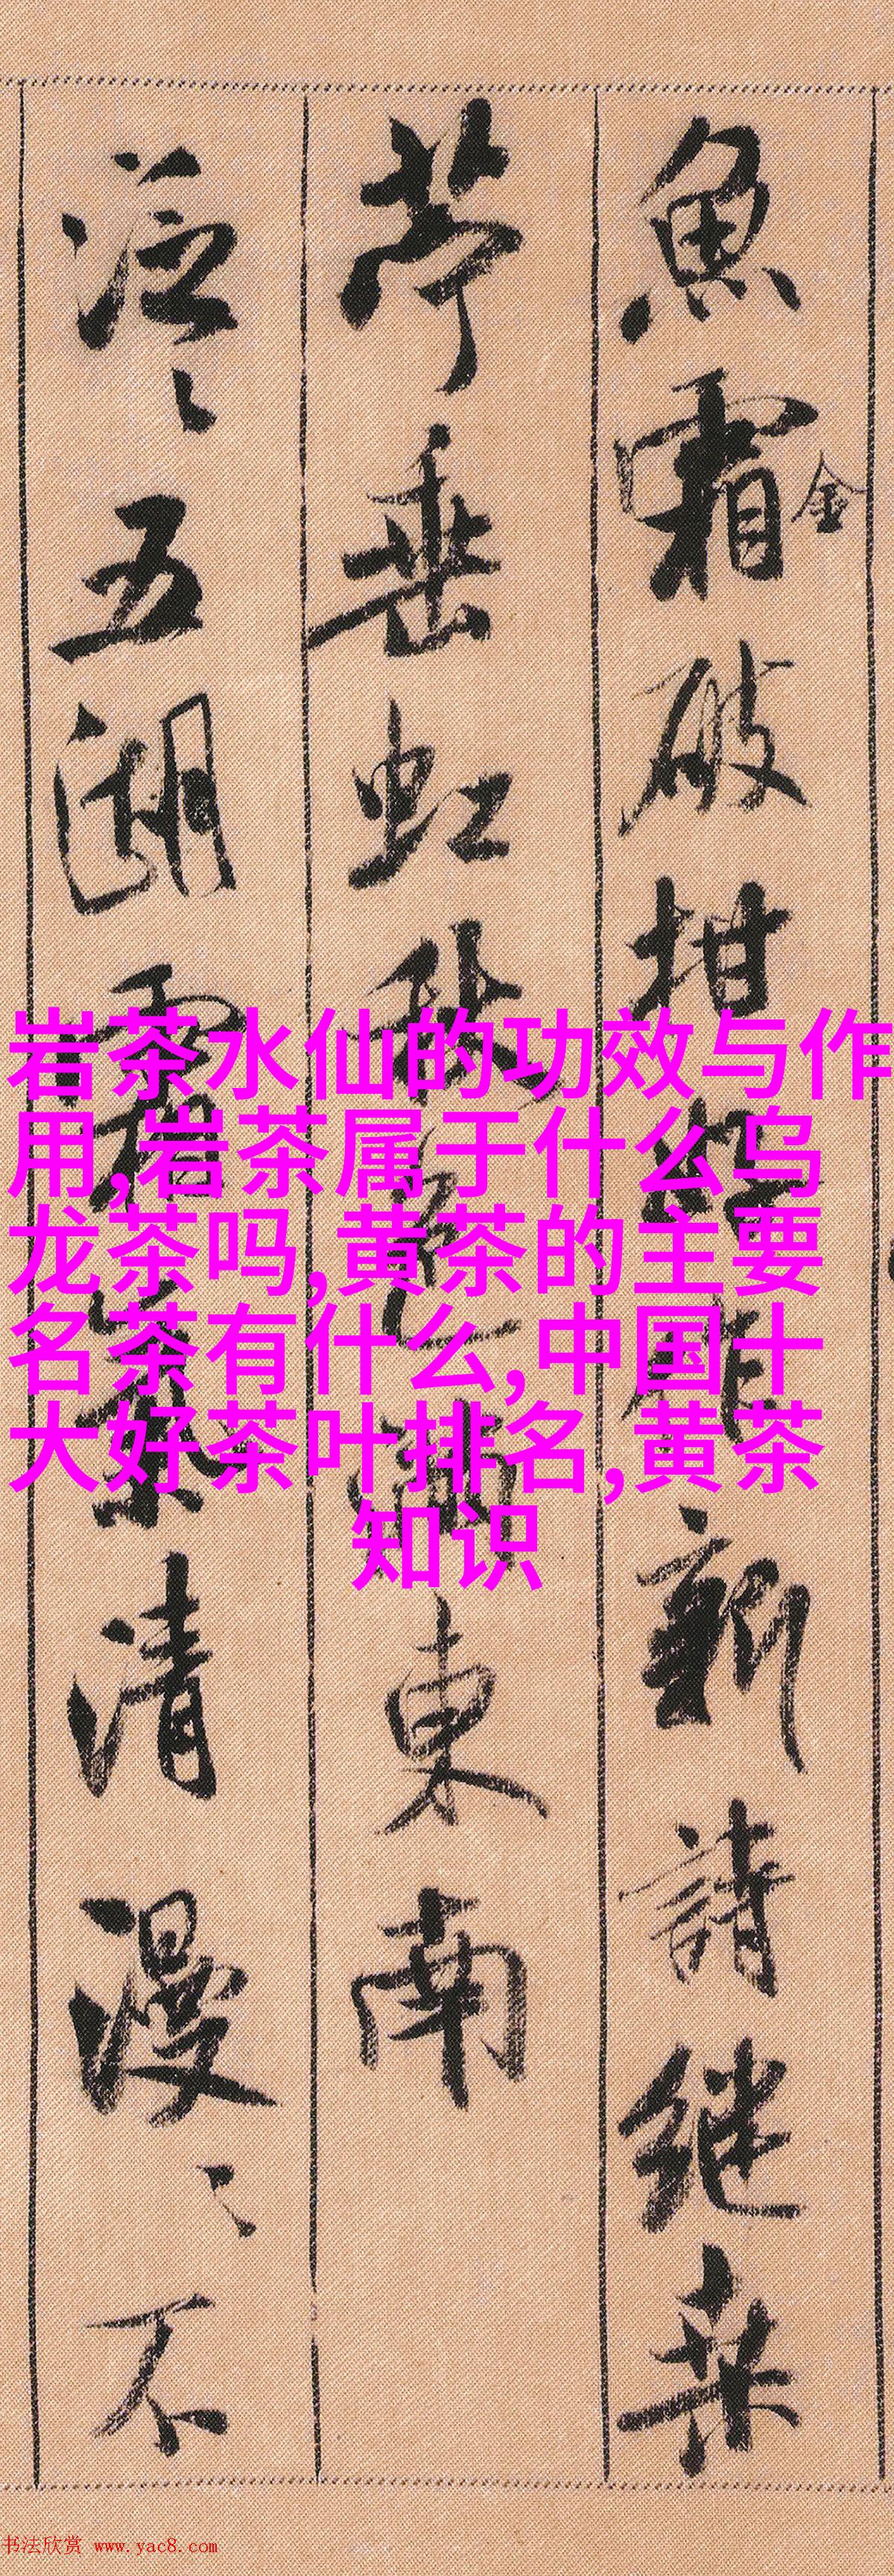 魚霜金破柑
作新詩継桑
苧垂虹秋色
東南
泛〻五湖霜氣清漫〻不
岩茶水仙的功效与作
用,岩茶属于什么乌
龙茶吗,黄茶的主要
名茶有什么,中国十
大好茶叶排名,黄茶
知识
书法欣赏 www.yac8.com